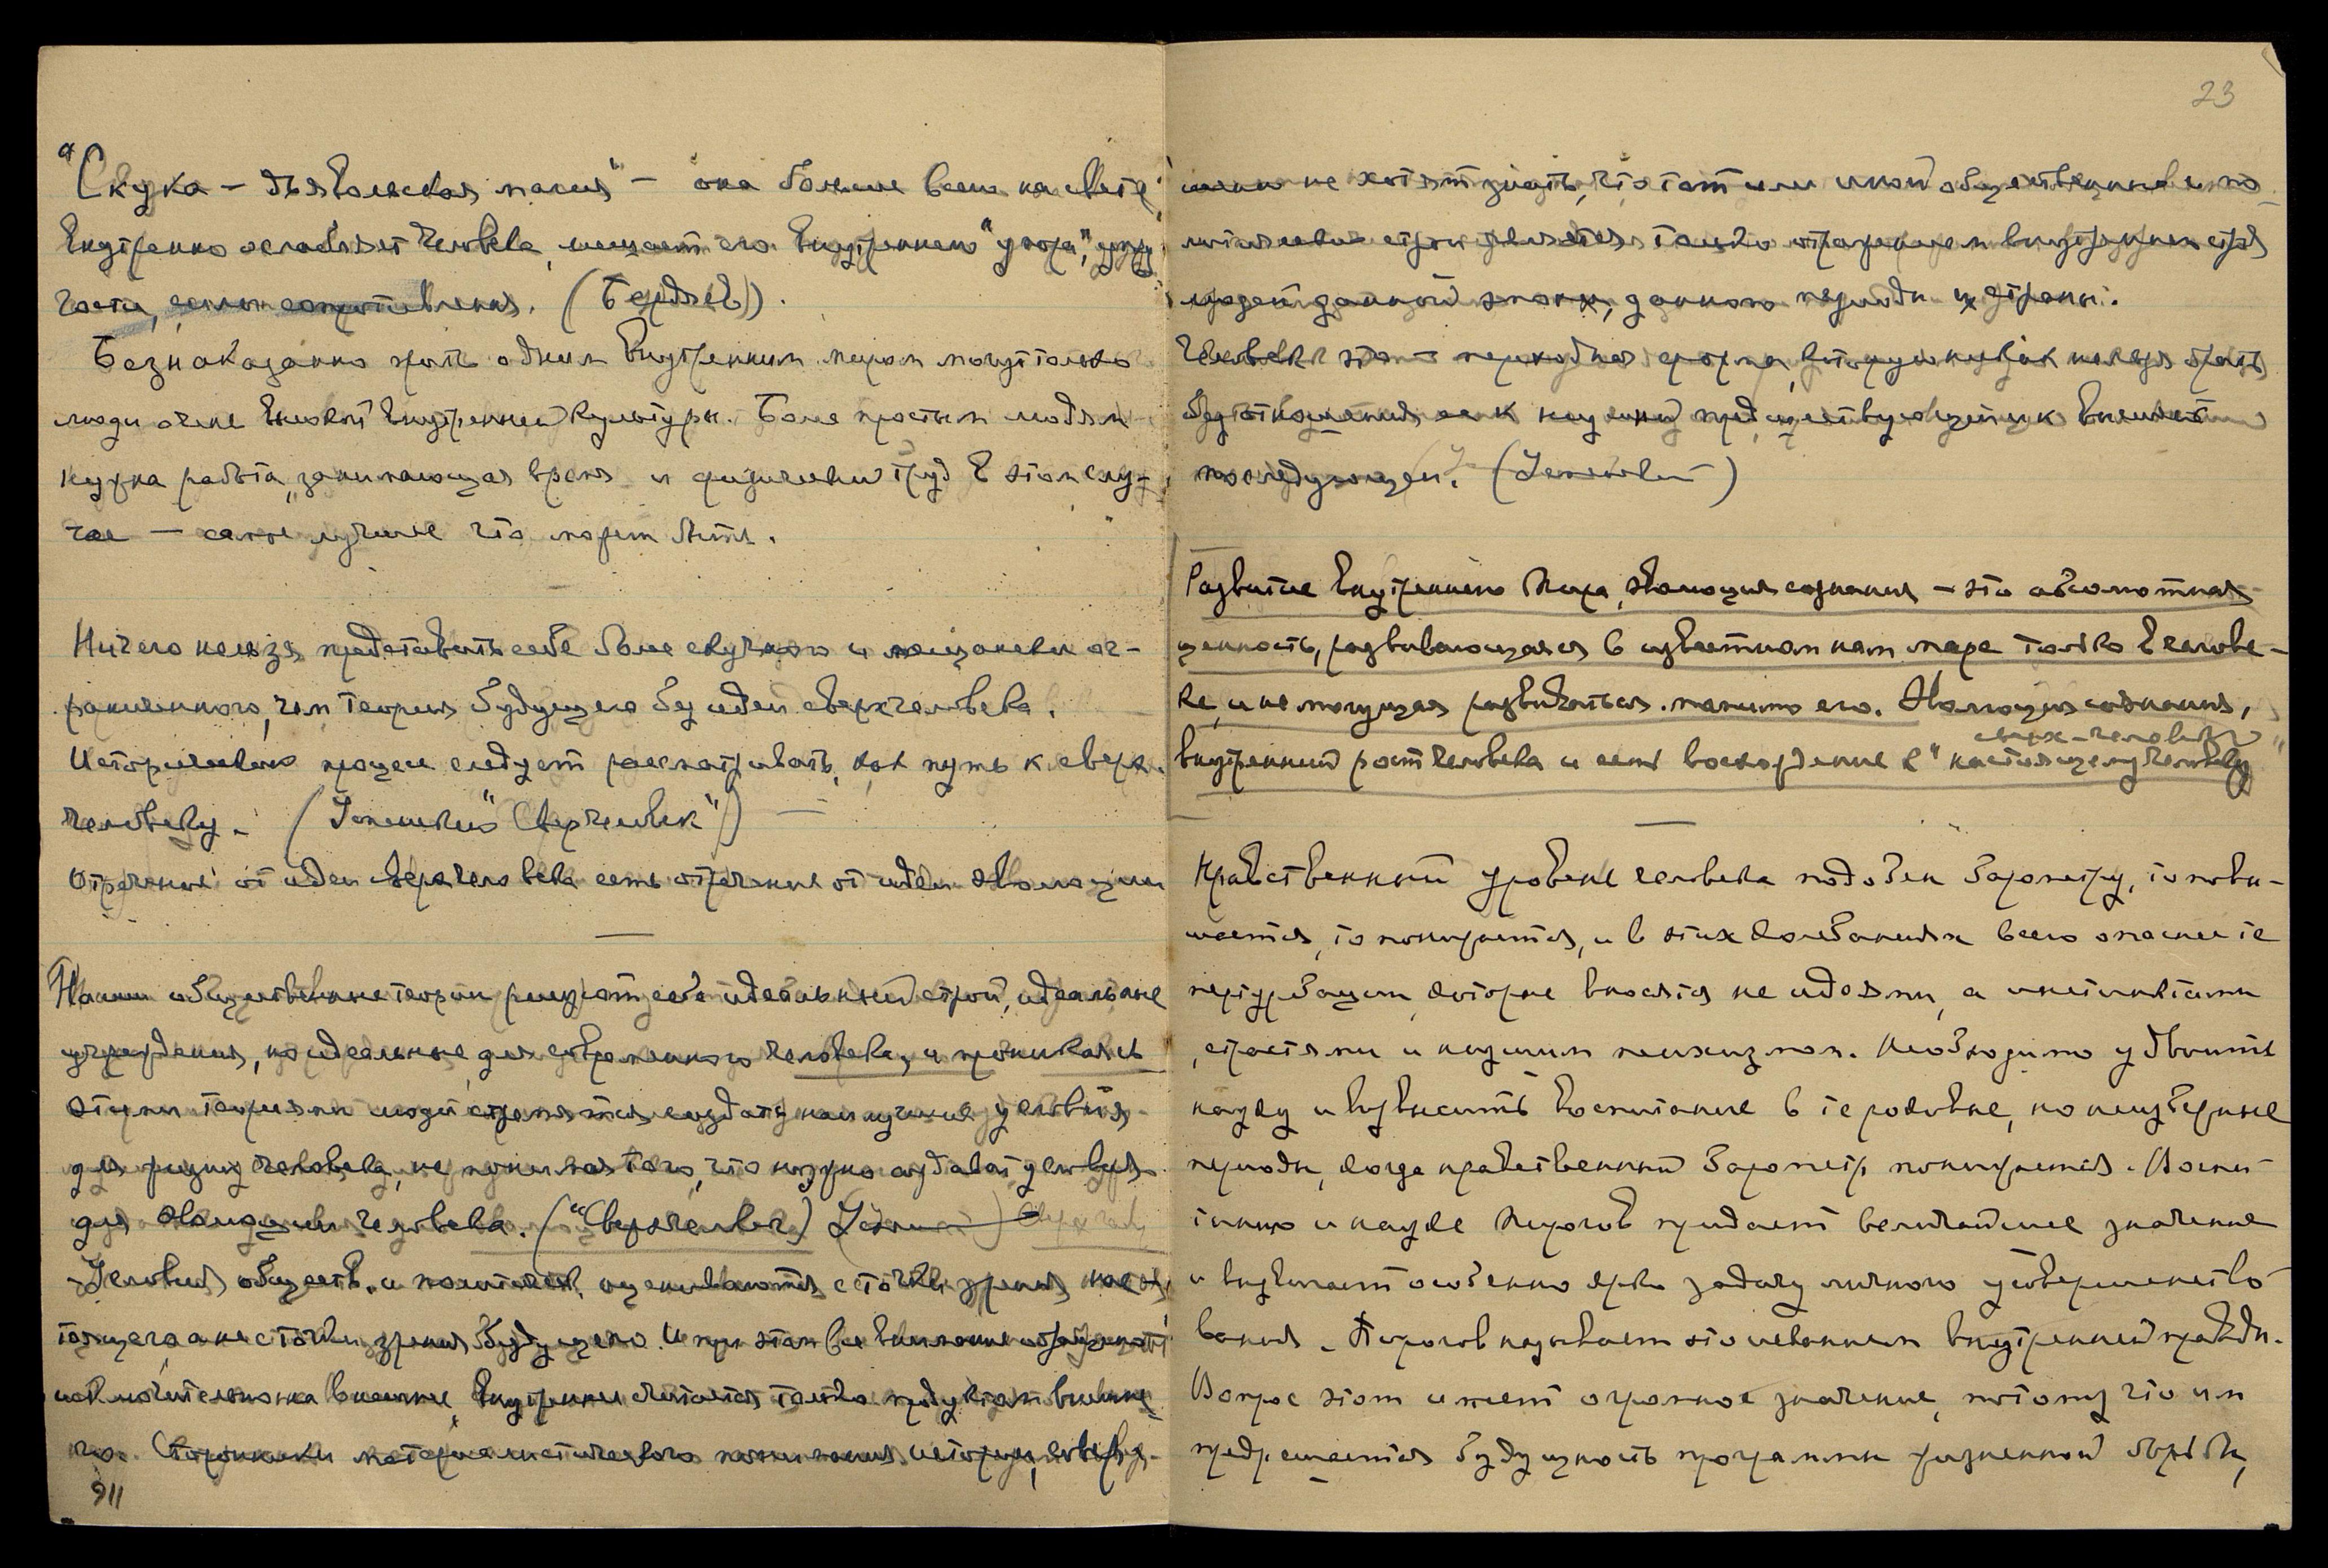 "Скука – дьявольская магия" – она больше всего на свете
внутренно ослабляет человека, лишает его внутреннего "упора", упру
гости, сопротивления. (Бердяев).
Безнаказанно жить одним внутренним миром могут только
люди очень высокой внутренней культуры. Более простым людям
нужна работа, занимающая время и физический труд в этом слу-
чае – самое лучшее что может быть.
Ничего нельзя представить себе более скучного и мещански ог-
раниченного, чем теория будущего без идеи сверхчеловека.
Исторический процесс следует рассматривать, как путь к сверх-
человеку. (Успенский "Сверхчеловек")
Отречение от идеи сверхчеловека есть отречение от идеи эволюции
Наши общественные теории рисуют себе идеальный строй, идеальные
учреждения, но идеальные для современного человека, и проникаясь
этими теориями люди стремятся создать наилучшие условия
для жизни человека, не понимая того, что нужно создавать условия
для эволюции человека. ("Сверхчеловек")
Условия обществ. и политическ. оцениваются с точки зрения нас-
тоящего, а не с точки зрения будущего. И при этом все внимание обращено
исключительно на внешнее, внутреннее считается только продуктом внешне-
го. Сторонники материалистического понимания истории, соверш-
116
23
шенно не хотят знать, что тот или иной общественный и по-
литический строй является только отражением внутреннего строя
людей данной эпохи, данного периода и страны.
Человек это – переходная форма, которую никак нельзя брать
без отношения ее к низшей предшествующей и к высшей
последующей. (Успенский)
Развитие внутреннего мира, эволюция сознания – это абсолютная
ценность, развивающаяся в известном нам мире только в челове-
ке, и не могущая развиваться помимо его. Эволюция сознания,
сверх-человеку
внутренний рост человека и есть восхождение к "настоящему человеку"
Нравственный уровень человека подобен барометру, то повы-
шается, то понижается, и в этих колебаниях всего опаснее те
пертурбации, которые вносятся не идеями, а инстинктами
страстями и низшим психизмом. Необходимо удвоить
науку и возвысить воспитание в те роковые, но неизбежные
периоды, когда нравственный барометр понижается. Воспи-
танию и науке Пирогов придает величайшее значение
и выдвигает особенно ярко задачу личного усовершенство-
вания. Пирогов называет это исканием внутренней правды.
Вопрос этот имеет огромное значение, потому что им
предрешается будущность программы жизненной борьбы,